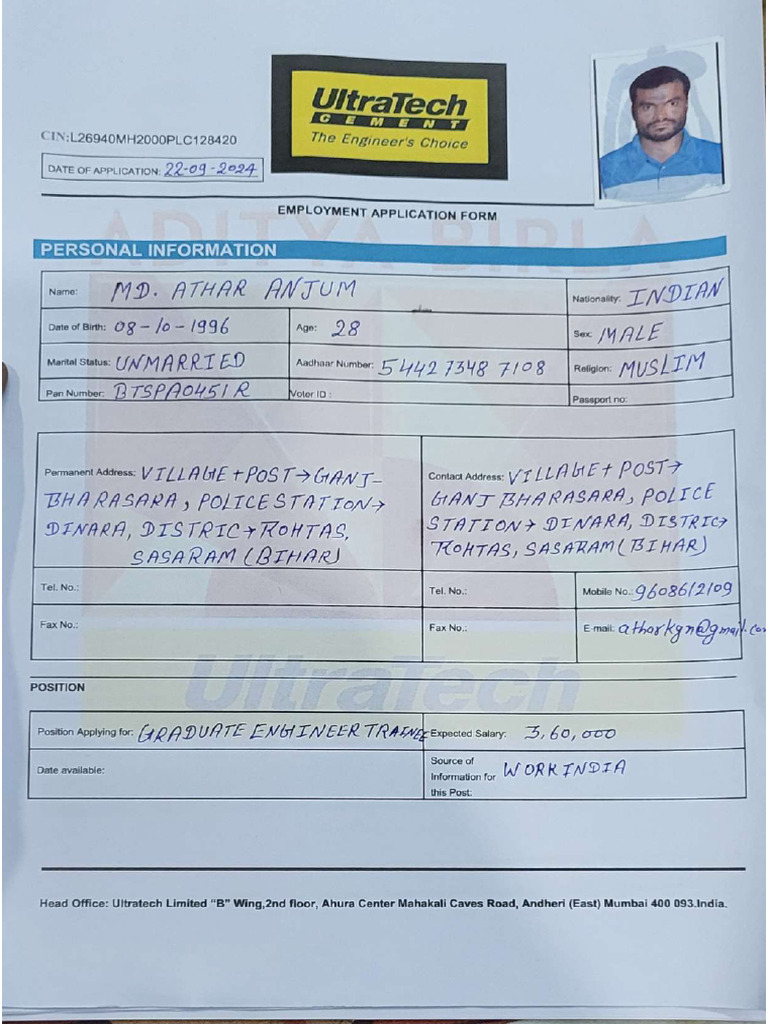 UltraTech
CEMENT
The Engineer's Choice
CIN:L26940MH2000PLC128420
DATE OF APPLICATION: 22-09-2024
EMPLOYMENT APPLICATION FORM
ADITYA BIRLA
PERSONAL INFORMATION
Name: MD. ATHAR ANJUM
Nationality: INDIAN
Date of Birth: 08-10-1996 Age: 28 Sex: MALE
Marital Status: UNMARRIED Aadhaar Number: 5442 7348 7108 Religion: MUSLIM
Pan Number: BTSPA0451R Voter ID : Passport no:
Permanent Address: VILLAGE + POST → GANJ-
BHARASARA, POLICE STATION →
DINARA, DISTRIC → ROHTAS,
SASARAM (BIHAR)
Contact Address: VILLAGE + POST →
GANJ BHARASARA, POLICE
STATION → DINARA, DISTRIC →
ROHTAS, SASARAM (BIHAR)
Tel. No.: Tel. No.: Mobile No.: 9608612109
Fax No.: Fax No.: E-mail: atharkgn@gmail.com
UltraTech
POSITION
Position Applying for: GRADUATE ENGINEER TRAINEE Expected Salary: 3,60,000
Date available:
Source of
Information for
this Post: WORKINDIA
Head Office: Ultratech Limited "B" Wing,2nd floor, Ahura Center Mahakali Caves Road, Andheri (East) Mumbai 400 093.India.